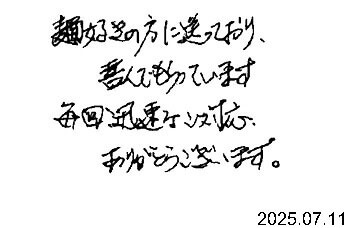 麺好きの方に送っており、
喜んでもらっています
毎回迅速な対応、
ありがとうございます。
2025.07.11